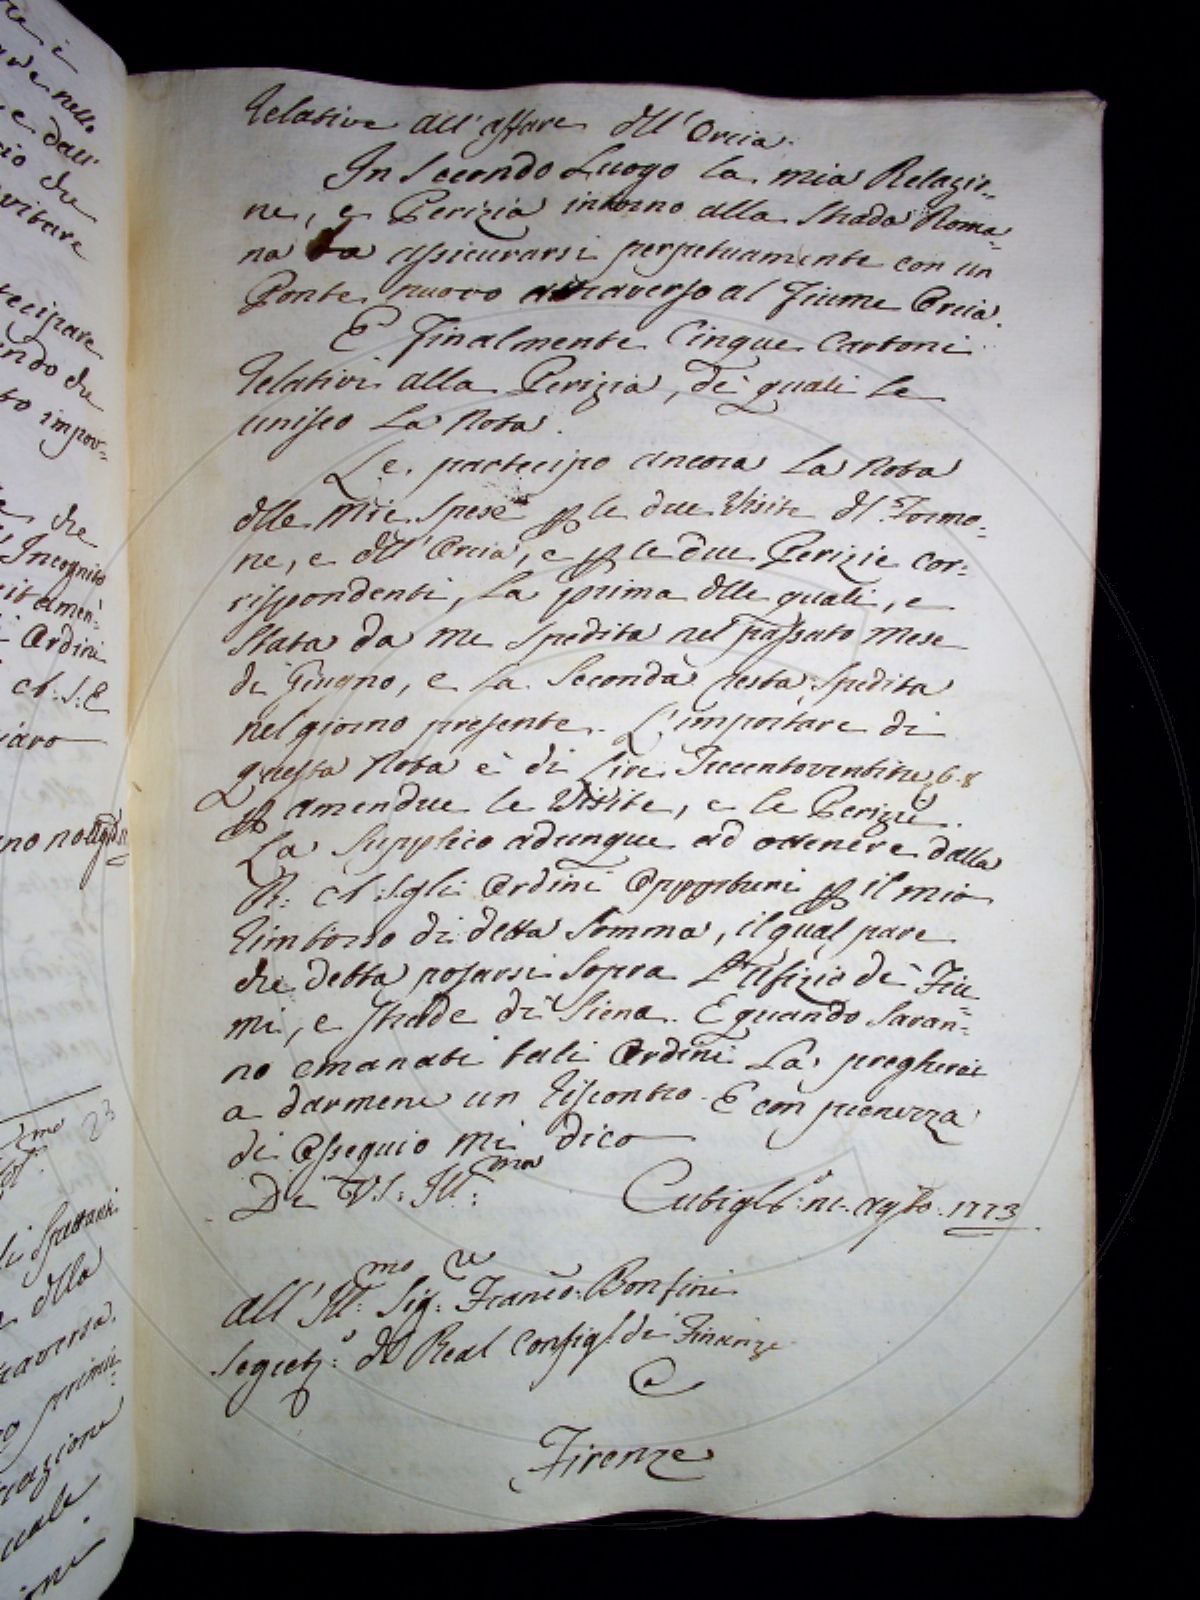 relative all'affare dll'Orcia.
In Secondo Luogo la mia Relazio-
ne, e Perizia intorno alla Strada Roma-
na da assicurarsi perpetuamente con un
Ponte nuovo attraverso al Fiume Orcia.
E Finalmente Cinque Cartoni
relativi alla Perizia, de' quali le
unisco la Nota.
Le partecipo ancora la Nota
dlle Mie Spese p le due Visite dl Formo-
ne, e dll'Orcia, e p le due Perizie cor-
rispondenti, la prima dlle quali, e
Stata da me Spedita nel passato Mese
di Giugno, e la Seconda resta Spedita
nel giorno presente. L'importare di
questa Nota è di Lire Trecentoventitre 6.8
p amendue le Visite, e le Perizie.
La Supplico adunque ad ottenere dalla
R: A: S. gli Ordini Opportuni p il mio
rimborso di detta Somma, il qual pare
che debba posarsi Sopra l'Ufizio de' Fiu-
mi, e Strade di Siena. E quando Saran-
no emanati tali Ordini La pregherei
a darmene un riscontro. E con pienezza
di Ossequio mi dico
Di V.S: Ill:ma
agsto. 1773
all' Ill:mo Sig:re Franco: Bonfini
Segret:o dl Real Consigl. di Finanze
Firenze
che
Ordini
A: S: E
dlla